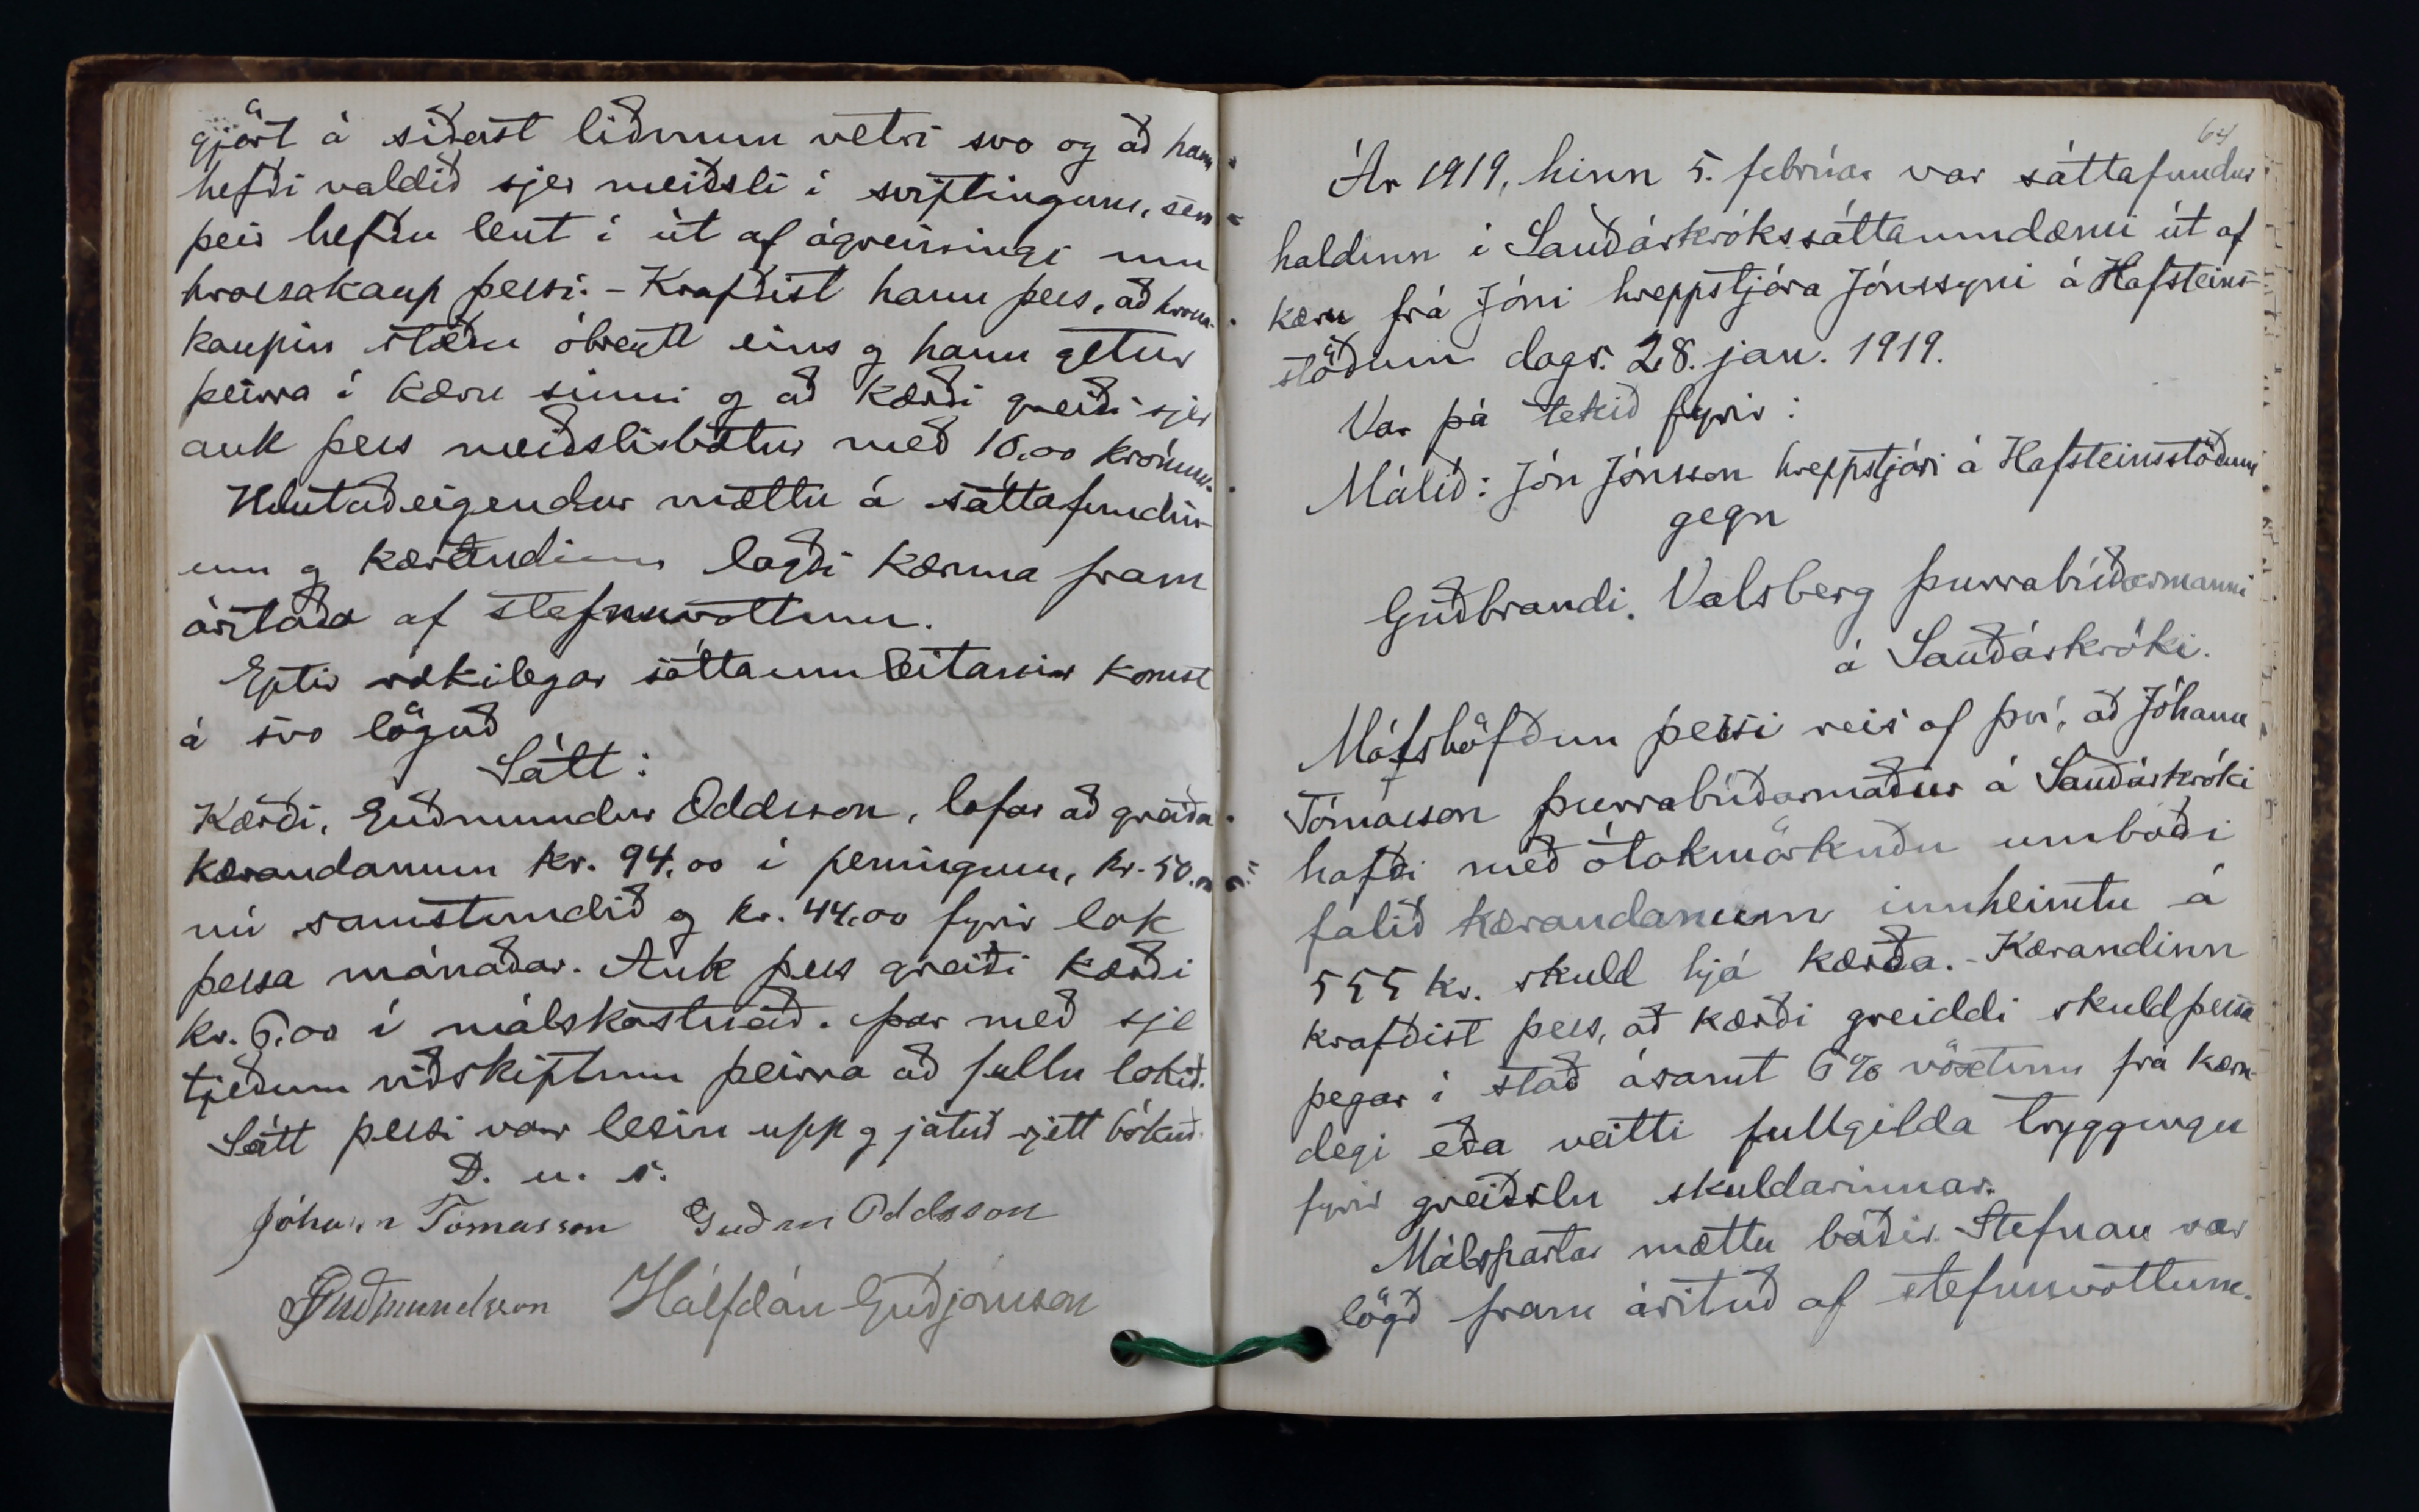 gjört á síðast liðnum vetri svo og að hann
hefði valdið sjer meiðsli í sviptingum, sem
þeir hefðu lent í út af ágreiningi um
hrossakaup þessi. - Krafðist hann þess, að hrossa-
kaupin stæðu óbreytt eins og hann getur
þeirra í kæru sinni og að kærði greiði sjer
auk þess meiðslisbætur með 10.00 krónum.
Hlutaðeigendur mættu á sáttafundin-
um og kærandinn lagði kæruna fram
áritaða af stefnuvottum.
Eptir rækilegar sáttaumleitanir komst
á svo löguð
Sátt:
Kærði, Guðmundur Oddsson, lofar að greiða
kærandanum kr. 94.00 í peningum, kr. 50.00
nú samstundið og kr. 44.00 fyrir lok
þessa mánaðar. Auk þess greiði kærði
kr. 6.00 í málskostnað. Þar með sje
tjeðum viðskiptum þeirra að fullu lokið.
Sátt þessi var lesin upp og játuð rjett bókuð.
D. u. s.
Jóhann Tómasson Guðm Oddsson
PGuðmundsson Hálfdán Guðjónsson
64
Ár 1919, hinn 5. febrúar var sáttafundur
haldinn í Sauðárkrókssáttaumdæmi út af
kæru frá Jóni hreppstjóra Jónssyni á Hafsteins-
stöðum dags. 28. jan. 1919.
Var þá tekið fyrir:
Málið: Jón Jónsson hreppstjóri á Hafsteinsstöðum
gegn
Guðbrandi Valsberg þurrabúðarmanni
á Sauðárkróki.
Málshöfðun þessi reis af því, að Jóhann
Tómasson þurrabúðarmaður á Sauðárkróki
hafði með ótakmörkuðu umboði
falið kærandanum innheimtu á
555 kr. skuld hjá kærða. - Kærandinn
krafðist þess, að kærði greiddi skuld þessa
þegar í stað ásamt 6% vöxtum frá kæru-
degi eða veitti fullgilda tryggingu
fyrir greiðslu skuldarinnar.
Málspartar mættu báðir. Stefnan var
lögð fram árituð af stefnuvottum.